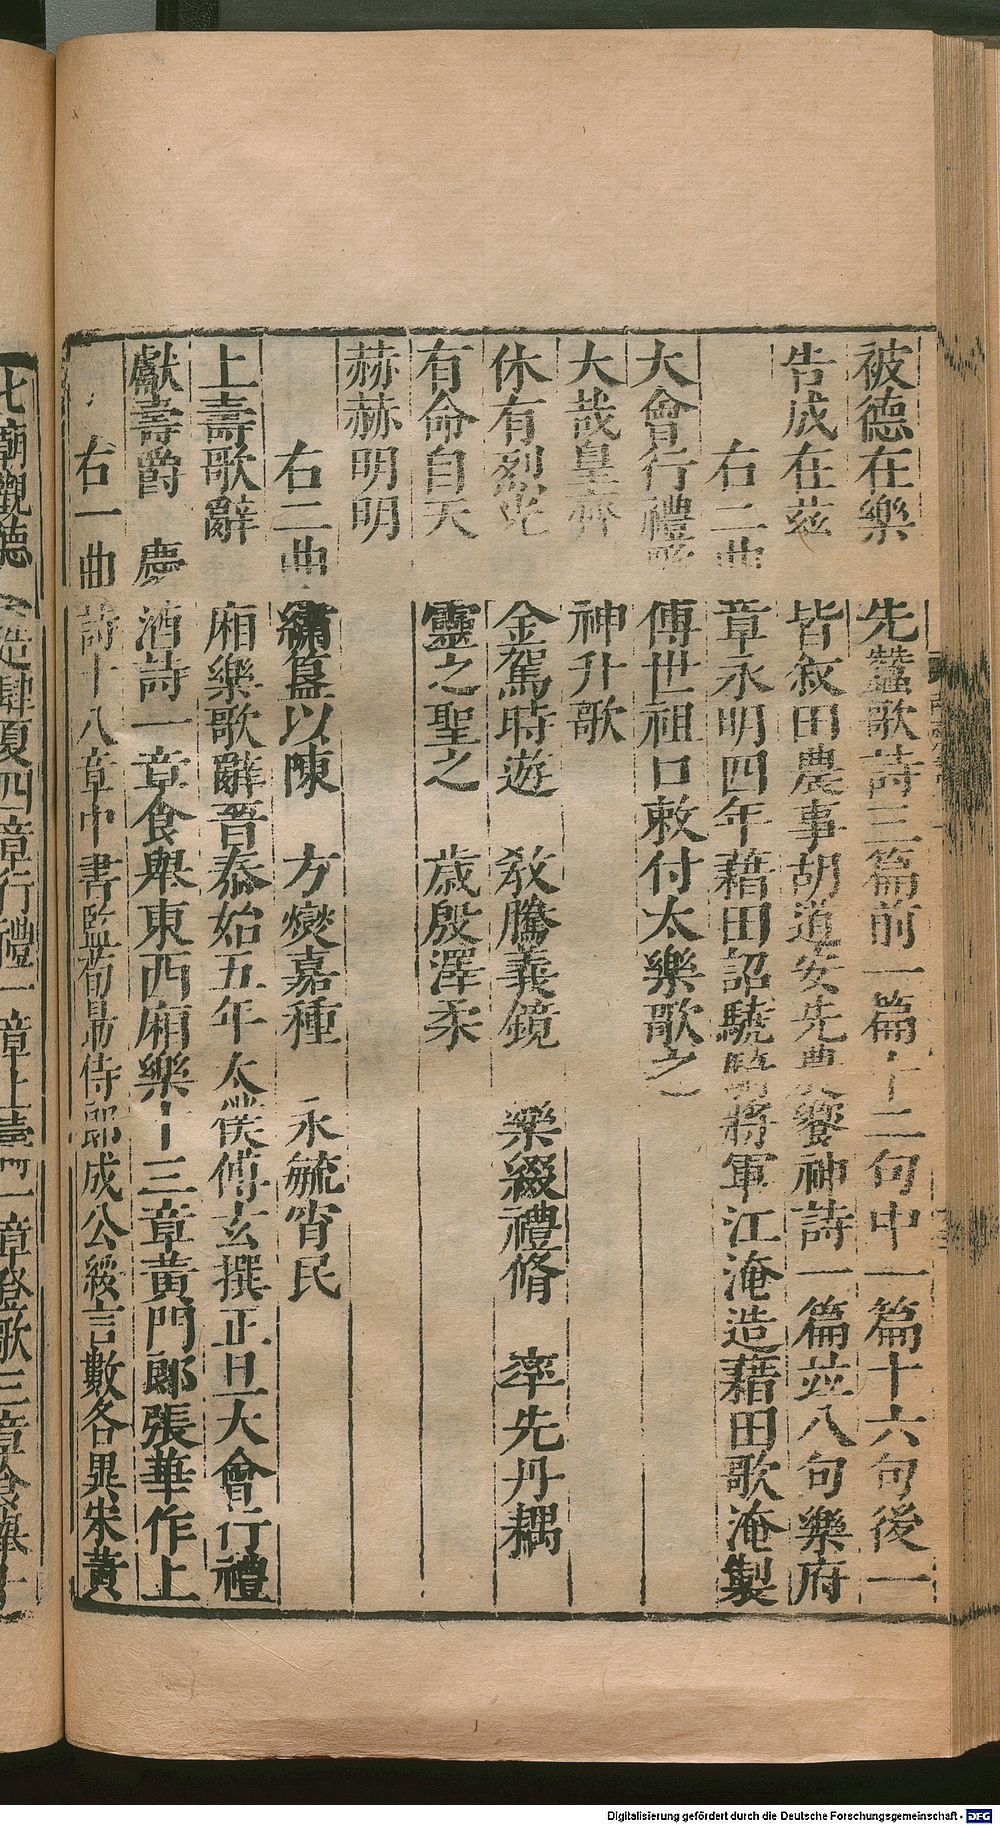 被德在樂 先蠶歌詩三篇前一篇十二句中一篇十六句後一
告成在茲 皆叙田農事胡道安先農饗神詩一篇並八句樂府
右二曲 章永明四年藉田詔驍騎將軍江淹造藉田歌淹製
大會行禮歌 傳世祖口敕付太樂歌之
大哉皇齊 神升歌
休有烈光 金駕時遊 教騰義鏡 樂綴禮脩 率先丹耦
有命自天 靈之聖之 歲殷澤柔
赫赫明明
右二曲 繡簋以陳 方燮嘉種 永毓宵民
上壽歌辭 廂樂歌辭晉泰始五年太僕傅玄撰正旦大會行禮
獻壽爵 慶 酒詩一章食舉東西廂樂十三章黃門郎張華作上
右一曲 詩十八章中書監荀勗侍郎成公綏言數各異宋黃
七廟觀德 造肆夏四章行禮一章上壽一章登歌三章食舉十
Digitalisierung gefördert durch die Deutsche Forschungsgemeinschaft - DFG